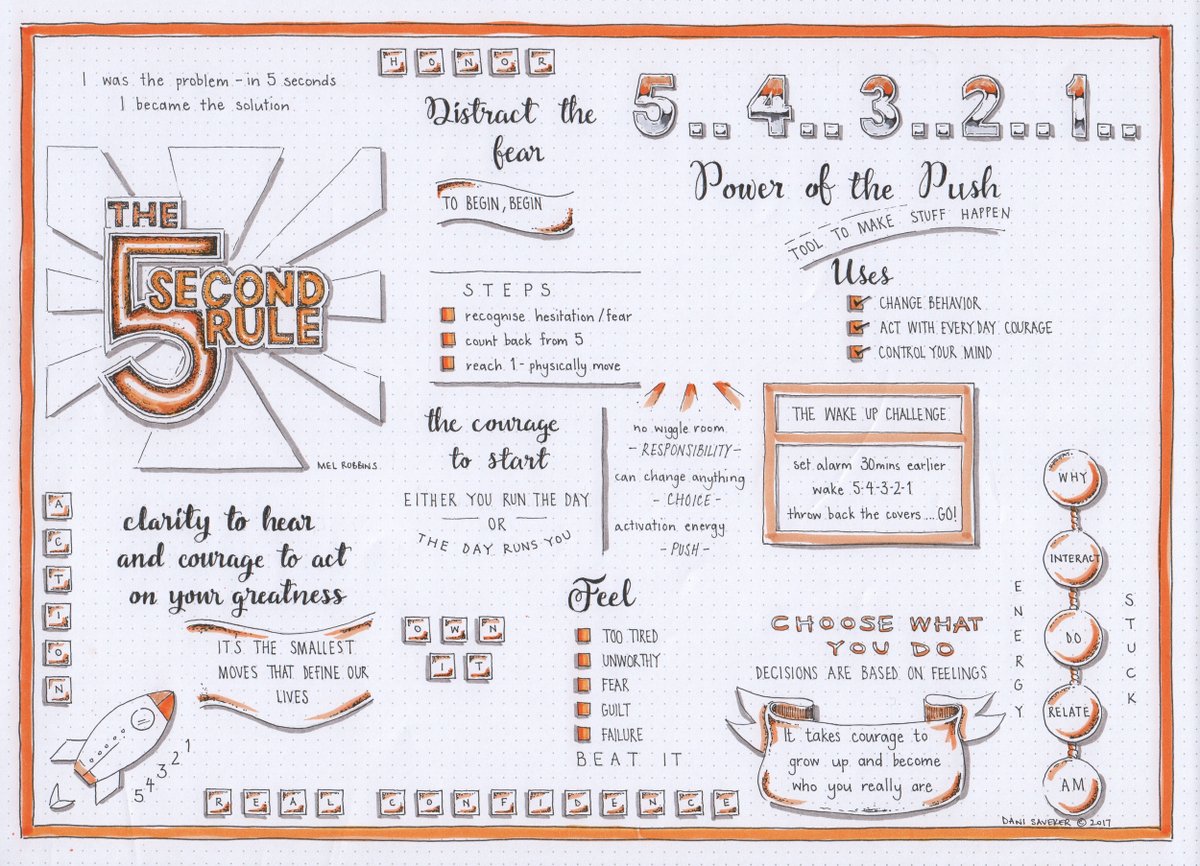 I was the problem - in 5 seconds
I became the solution.
THE
5 SECOND
RULE
MEL ROBBINS
HONOR
Distract the
fear
TO BEGIN, BEGIN
5.. 4... 3...2...1...
Power of the Push
TOOL TO MAKE STUFF HAPPEN
Uses
CHANGE BEHAVIOR
ACT WITH EVERYDAY COURAGE
CONTROL YOUR MIND
STEPS
recognise hesitation/fear
count back from 5
reach 1 - physically move
the courage
to start
EITHER YOU RUN THE DAY
OR
THE DAY RUNS YOU
no wiggle room
- RESPONSIBILITY -
can change anything
- CHOICE -
activation energy
- PUSH -
THE WAKE UP CHALLENGE
set alarm 30mins earlier
wake 5-4-3-2-1
throw back the covers...GO!
ACTION
clarity to hear
and courage to act
on your greatness
IT'S THE SMALLEST
MOVES THAT DEFINE OUR
LIVES
5 4 3 2 1
OWN
IT
Feel
TOO TIRED
UNWORTHY
FEAR
GUILT
FAILURE
BEAT IT
REAL CONFIDENCE
CHOOSE WHAT
YOU DO
DECISIONS ARE BASED ON FEELINGS
It takes courage to
grow up and become
who you really are
ENERGY
WHY
INTERACT
DO
RELATE
AM
STUCK
DANI SAVEKER © 2017